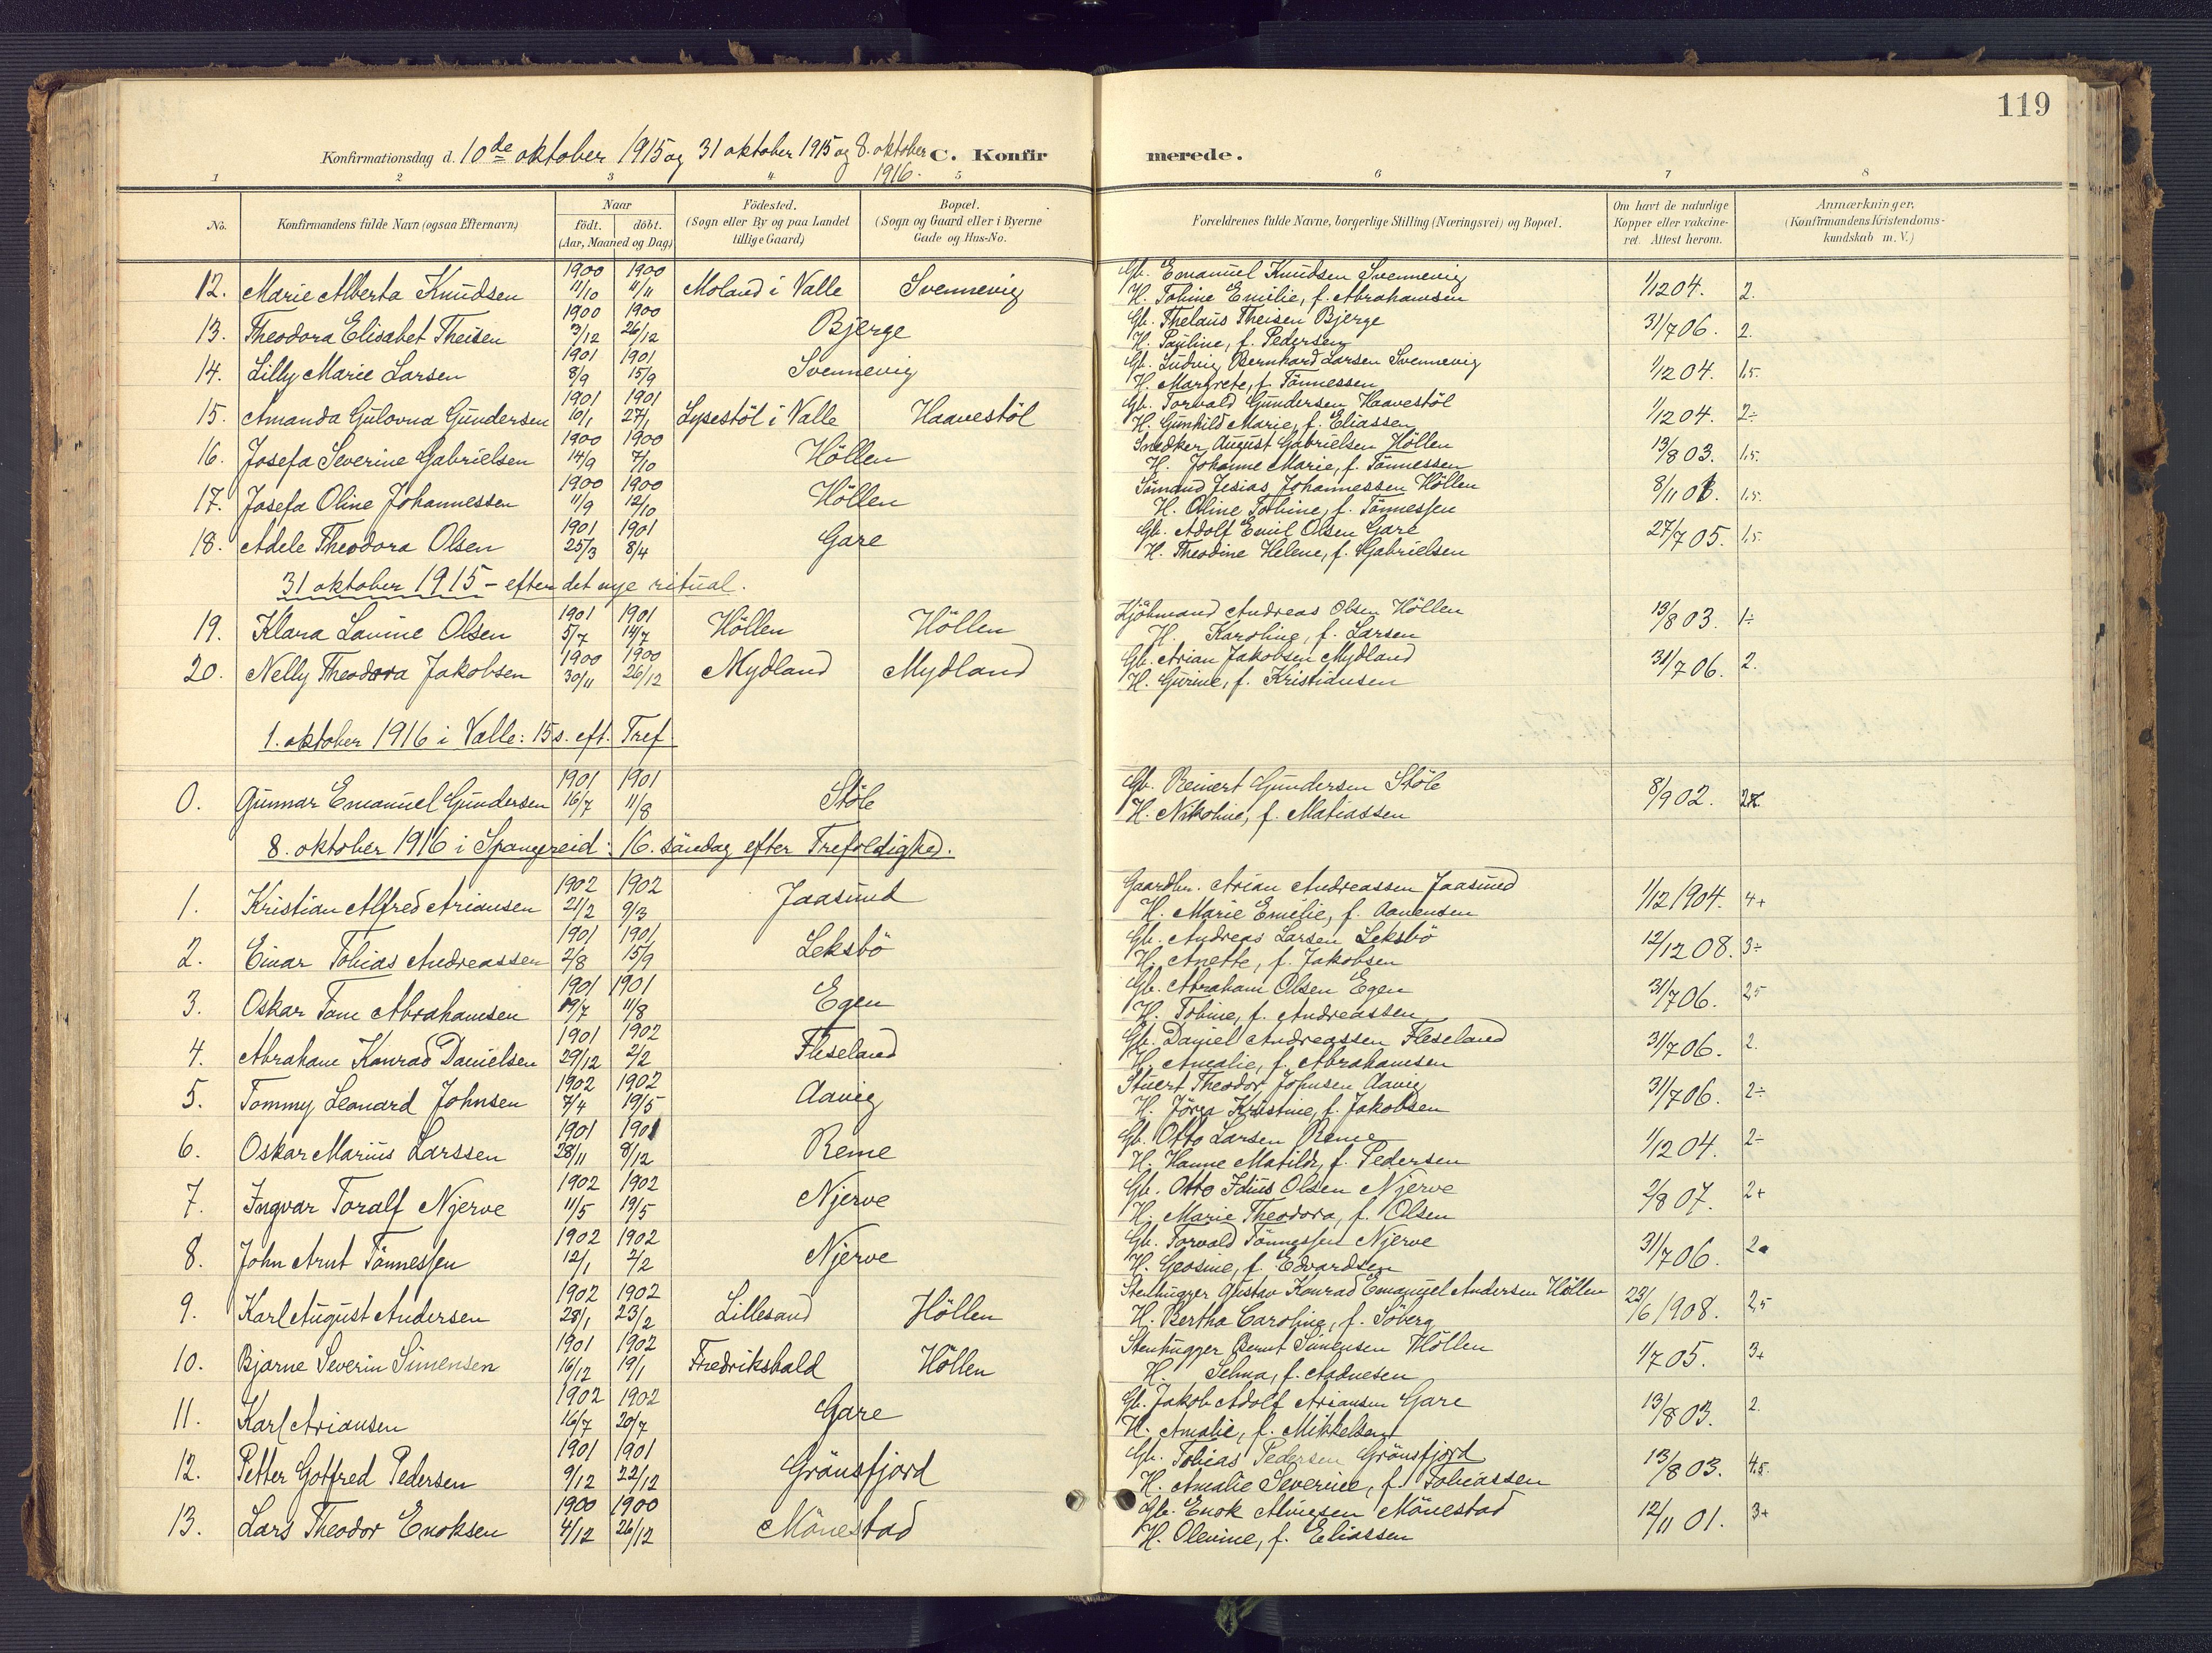 119
Konfirmationsdag d. 10de oktober 1915 og 31 oktober 1915 og 8. oktober C. Konfir merede.
1916.
1 2 3 4 5 6 7 8
No. Konfirmandens fulde Navn (ogsaa Efternavn) Naar födt. döbt. (Aar, Maaned og Dag) Födested. (Sogn eller By og paa Landet tillige Gaard) Bopæl. (Sogn og Gaard eller i Byerne Gade og Hus-No. Forældrenes fulde Navne, borgerlige Stilling (Næringsvei) og Bopæl. Om havt de naturlige Kopper eller vakcineret. Attest herom. Anmærkninger. (Konfirmandens Kristendomskundskab m.V.)
1900 1900 Gb. Emanuel Knudsen Svennevig
12. Marie Alberta Knudsen 11/10 11/11 Moland i Valle Svennevig H. Tobine Emilie, f. Abrahamsen 1/12 04. 2.
1900 1900 Gb. Thelaus Theisen Bjerge
13. Theodora Elisabet Theisen 3/12 26/12 Bjerge H. Pauline, f. Pedersen 31/7 06. 2.
1901 1901 Gb. Ludvig Bernhard Larsen Svennevig
14. Lilly Marie Larsen 8/9 15/9 Svennevig H. Margrete, f. Tönnessen 1/12 04. 1.5.
1901 1901 Gb. Torvald Gundersen Haavestöl
15. Amanda Gulovna Gundersen 10/1 27/1 Lysestöl i Valle Haavestöl H. Gunhild Marie, f. Eliassen 1/12 04. 2÷
1900 1900 Snedker August Gabrielsen Höllen
16. Josefa Severine Gabrielsen 14/9 7/10 Höllen H. Johanne Marie, f. Tönnessen 13/8 03. 1.5.
1900 1900 Sömand Jesias Johannessen Höllen
17. Josefa Oline Johannessen 11/9 12/10 Höllen H. Oline Tobine, f. Tönnessen 8/11 1.5.
1901 1901 Gb. Adolf Emil Olsen Gare
18. Adele Theodora Olsen 25/3 8/4 Gare H. Theodine Helene, f. Gabrielsen 27/7 05. 1.5.
31 oktober 1915 – efter det nye ritual.
1901 1901 Kjöbmand Andreas Olsen Höllen
19. Klara Lavine Olsen 5/7 14/7 Höllen Höllen H. Karoline, f. Larsen 13/8 03. 1÷
1900 1900 Gb. Arian Jakobsen Mydland
20. Nelly Theodora Jakobsen 30/11 26/12 Mydland Mydland H. Gurine, f. Kristiansen 31/7 06. 2.
1. oktober 1916 i Valle: 15 s. eft. Tref
1901 1901 Gb. Reinert Gundersen Stöle
0. Gunnar Emanuel Gundersen 16/7 11/8 Stöle H. Nikoline, f. Matiassen 8/9 02.
8. oktober 1916 i Spangereid: 16. söndag efter Trefoldighed.
1902 1902 Gaardbr. Arian Andreassen Jaasund
1. Kristian Alfred Ariansen 21/2 9/3 Jaasund H. Marie Emelie, f. Aanensen 1/12 1904. 4+
1901 1901 Gb. Andreas Larsen Leksbö
2. Einar Tobias Andreassen 2/8 15/9 Leksbö H. Anette, f. Jakobsen 12/12 08. 3÷
1901 1901 Gb. Abraham Olsen Egen
3. Oskar Tom Abrahamsen 19/7 11/8 Egen H. Tobine, f. Andreassen 31/7 06. 2.5
1901 1902 Gb. Daniel Andreassen Fleseland
4. Abraham Konrad Danielsen 29/12 2/2 Fleseland H. Amalie, f. Abrahamsen 31/7 06. 2.
1902 1902 Stuert Theodor Johnsen Aavig
5. Tommy Leonard Johnsen 7/4 19/5 Aavig H. Jörga Kristine, f. Jakobsen 31/7 06. 2÷
1901 1901 Gb. Otto Larsen Reme
6. Oskar Marius Larssen 28/11 8/12 Reme H. Hanne Matilde, f. Pedersen 1/12 04. 2÷
1902 1902 Gb. Otto Idius Olsen Njerve
7. Ingvar Toralf Njerve 11/5 19/5 Njerve H. Marie Theodora, f. Olsen 2/8 07. 2+
1902 1902 Gb. Torvald Tönnessen Njerve
8. John Arnt Tönnessen 12/1 2/2 Njerve H. Geosine, f. Edvardsen 31/7 06. 2
1902 1902 Stenhugger Gustav Konrad Emanuel Andersen Höllen
9. Karl August Andersen 28/1 23/2 Lillesand Höllen H. Bertha Caroline, f. Söberg 23/6 1908. 2.5
1901 1902 Stenhugger Bernt Simensen Höllen
10. Bjarne Severin Simensen 16/12 19/1 Fredrikshald Höllen H. Selma, f. Aadnesen 1/7 05. 3+
1902 1902 Gb. Jakob Adolf Ariansen Gare
11. Karl Ariansen 16/7 20/7 Gare H. Amalie, f. Mikkelsen 13/8 03. 2.
1901 1901 Gb. Tobias Pedersen Grönsfjord
12. Petter Gotfred Pedersen 9/12 22/12 Grönsfjord H. Amalie Severine, f. Tobiassen 13/8 03. 4.5.
1900 1900 Gb. Enok Alvigsen Mönestad
13. Lars Theodor Enoksen 4/12 26/12 Mönestad H. Olenine, f. Eliassen 12/11 01. 3+